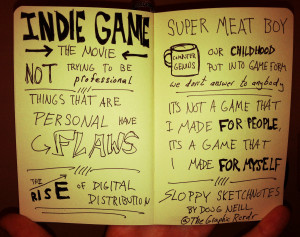 INDIE GAME
THE MOVIE
NOT TRYING TO BE
professional
THINGS THAT ARE
PERSONAL HAVE
FLAWS
THE RISE OF DIGITAL
DISTRIBUTION
SUPER MEAT BOY
OUR CHILDHOOD
PUT INTO GAME FORM
we don't answer to anybody
IT'S NOT A GAME THAT
I MADE FOR PEOPLE,
IT'S A GAME THAT
I MADE FOR MYSELF
SLOPPY SKETCHNOTES
BY DOUG NEILL
@TheGraphicRecdr